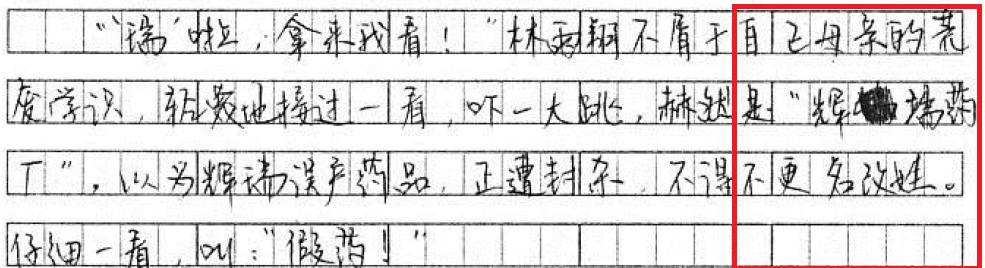 “‘瑞’啦，拿来我看！”林雨翔不屑于自己母亲的荒
废学识，轻蔑地接过一看，吓一大跳，赫然是“辉瑞药
厂”，以为辉瑞误产药品，正遭封杀，不得不更名改姓。
仔细一看，叫：“假药！”